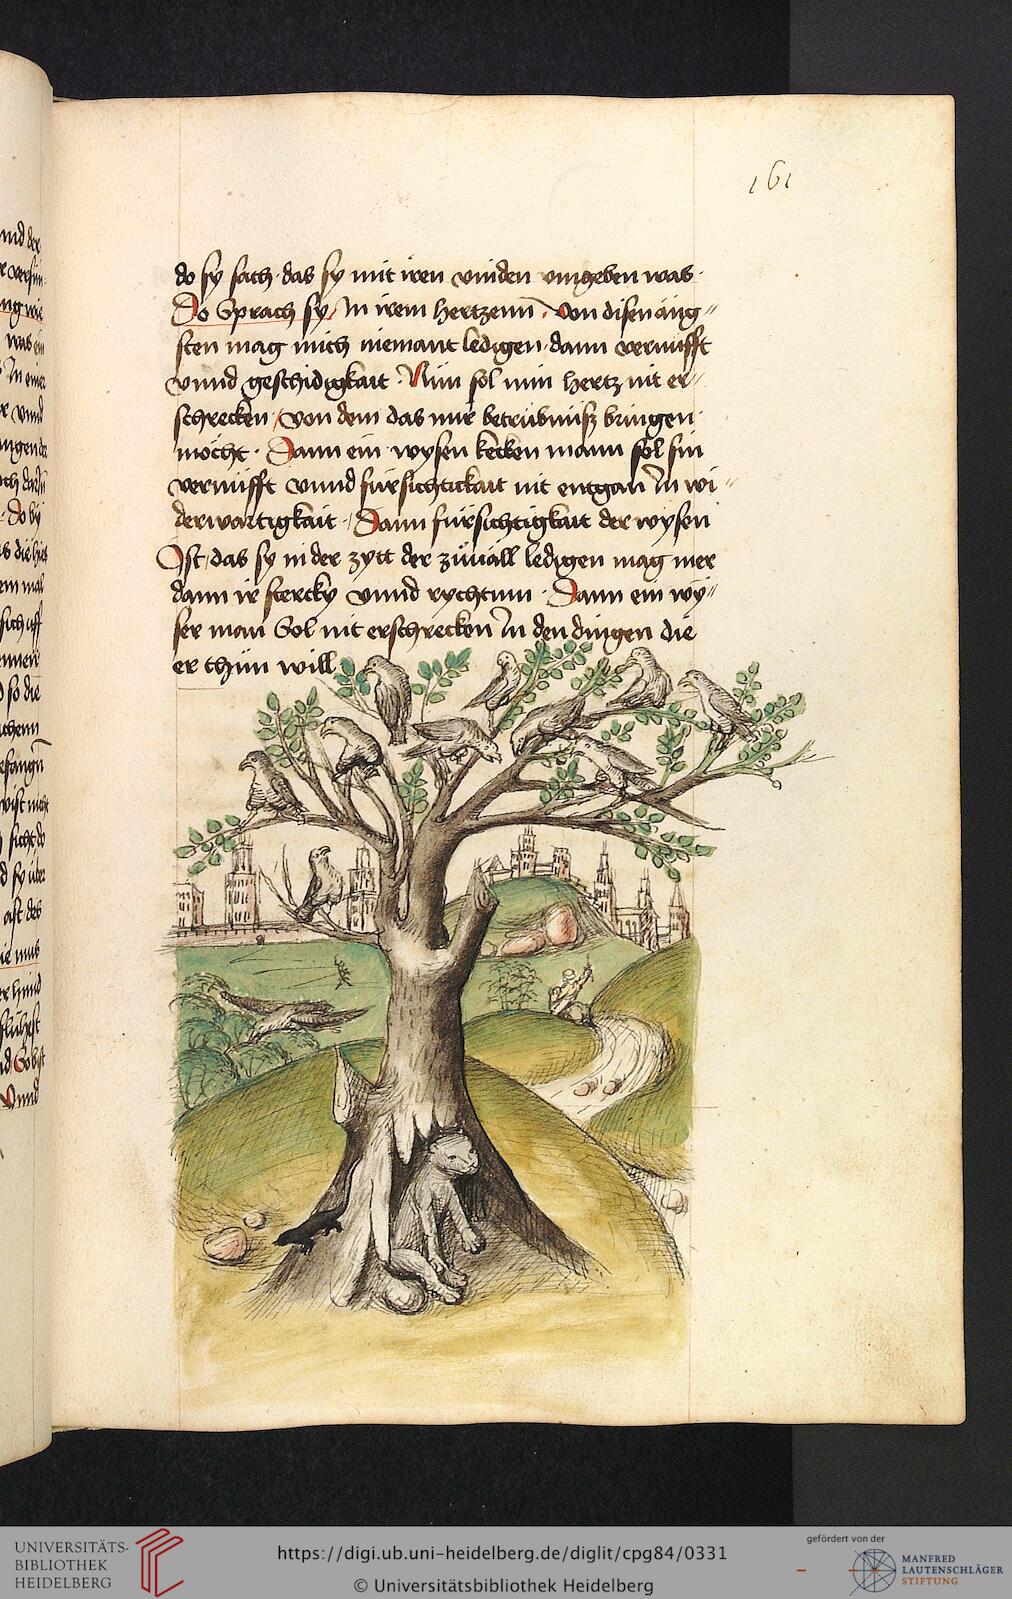 161
do sy sach · das sy mit iren vinden vmgeben was ·
Do Sprach sy / In irem hertzenn · Von disen äng〃
sten mag mich niemant ledigen · dann vernüfft
vnnd geschidigkait · Nun sol min hertz nit er〃
schrecken / von dem das mir betrübnüß bringen
möcht · Dann ein wysen kecken mann sol sin
vernüfft vnnd fürsichtickait nit entgan In wi〃
derwärtigkait · Dann fürsichtigkait der wysen
Ist / das sy in der zytt der züuäll ledigen mag mer
dann ir stercky vnnd rychtum · Dann ein wy〃
ser man Sol nit erschrecken In den dingen die
er thün will
nnd der
ng wie
was ein
In einer
vnnd
Do by
vnnd
UNIVERSITÄTS-
BIBLIOTHEK
HEIDELBERG
https://digi.ub.uni-heidelberg.de/diglit/cpg84/0331
© Universitätsbibliothek Heidelberg
gefördert von der
MANFRED
LAUTENSCHLÄGER
STIFTUNG